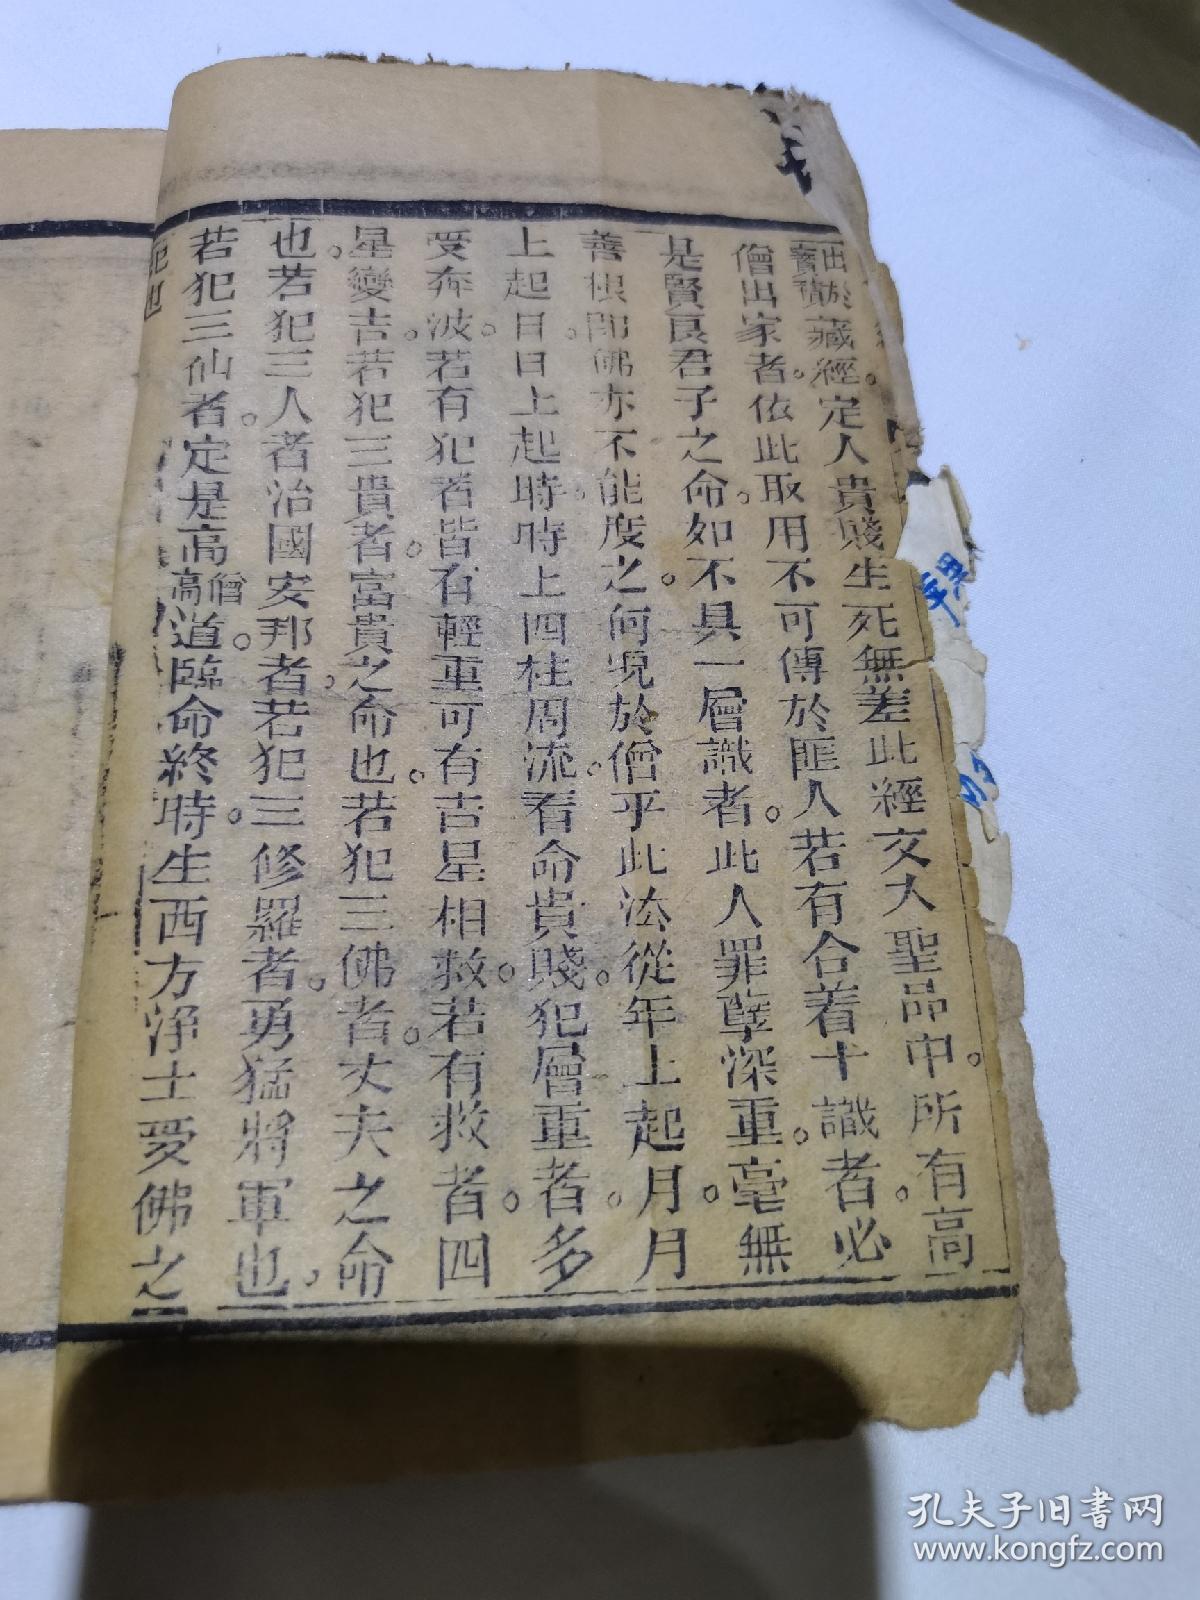 出於藏經。定人貴賤生死無差此經文大聖品中。所有高
僧出家者。依此取用不可傳於匪人若有合着十識者必。
是賢良君子之命。如不具一層識者。此人罪孽深重。毫無
善根。即佛亦不能度之。何況於僧乎此法從年上起月。月
上起日日上起時。時上四柱周流。看命貴賤。犯層重者。多
受奔波。若有犯者皆有輕重可有吉星相救。若有救者。四
星變吉。若犯三貴者。富貴之命也。若犯三佛者。丈夫之命
也。若犯三人者治國安邦者。若犯三修羅者。勇猛將軍也。
若犯三仙者。定是高僧高道。臨命終時。生西方淨土受佛之
孔夫子旧書网
www.kongfz.com